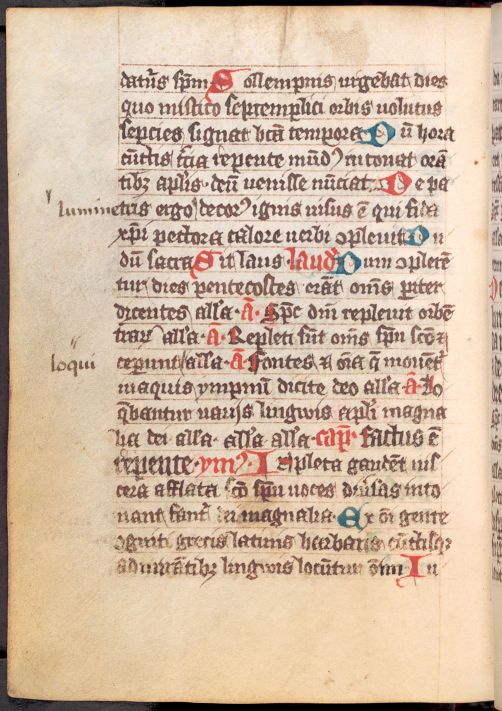 datur̄s sp̄m S ollempnis urgebat dies
quo mistico septemplici orbis uolutus
septies signat bt̄a tempora D ū hora
cūctis t̄cia repente mūdꝰ intonat orā
tibꝫ apl̄is deū uenisse nūciat D e pa
lumine tris ergo decorꝰ ignis uisus ē qui fida
xp̄i pectora calore uerbi ꝯpleuit D u
dū sacra S it laus laud D um ꝯplerē
tur dies pentecostes erāt om̄s pariter
dicentes all̄a a̅ Sp̄c dn̄i repleuit orbē
t̄rarꝝ all̄a a̅ Repleti st̄ om̄s sp̄u sc̄o ⁊
loqui ceperunt all̄a a̅ Fontes ⁊ oīa q̄ mouēt̄
in aquis ympnū dicite deo all̄a a̅ Lo
q̄bantur uarijs lingwis apl̄i magna
lia dei all̄a all̄a all̄a cap̄ Factus ē
repente ymꝰ I mpleta gaudēt uis
cera afflata sc̄o sp̄u uoces diu̅sas into
nant fant̄ dei magnalia Ex oī gente
ꝯgniti grecis latinis barbaris cūctisqꝫ
admirātibꝫ lingwis locūtur om̄i I u